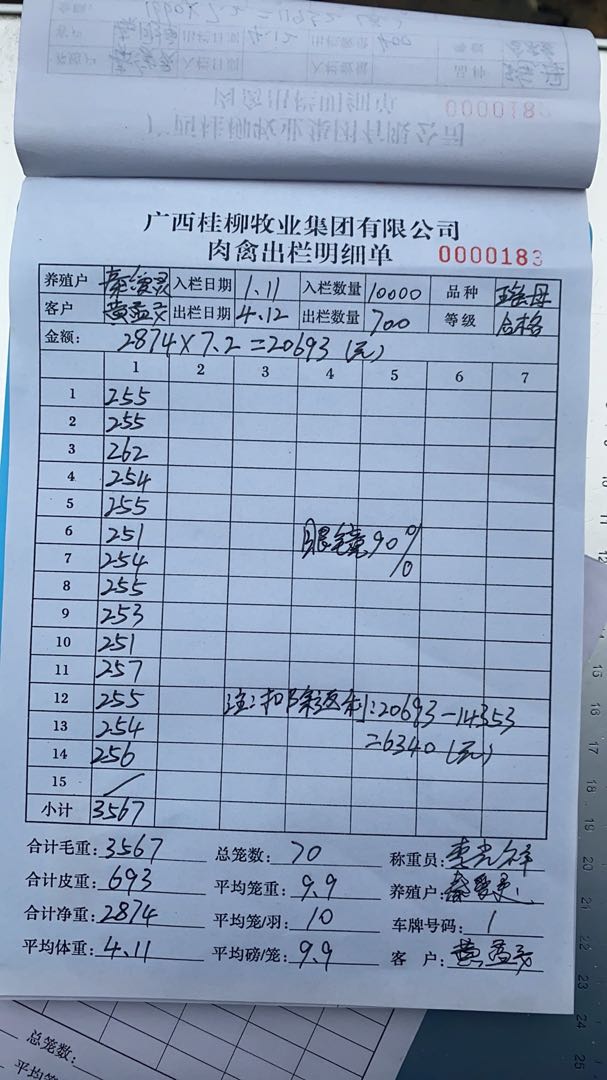 0000182
肉禽出栏明细单
广西桂柳牧业集团有限公司
广西桂柳牧业集团有限公司
肉禽出栏明细单 0000183
养殖户 入栏日期 1.11 入栏数量 10000 品种
客户 黄孟 出栏日期 4.12 出栏数量 700 等级 合格
金额: 2874×7.2=20693(元)
1 2 3 4 5 6 7
1 255
2 255
3 262
4 254
5 255
6 251 眼镜90%
7 254
8 255
9 253
10 251
11 257
12 255 注:扣除返利:20693-14353
13 254 =6340(元)
14 256
15 /
小计 3567
合计毛重:3567 总笼数:70 称重员:
合计皮重:693 平均笼重:9.9 养殖户:
合计净重:2874 平均笼/羽:10 车牌号码:1
平均体重:4.11 平均磅/笼:9.9 客户:黄孟
总笼数:
平均笼
16
17
18
19
20
21
22
23
24
25